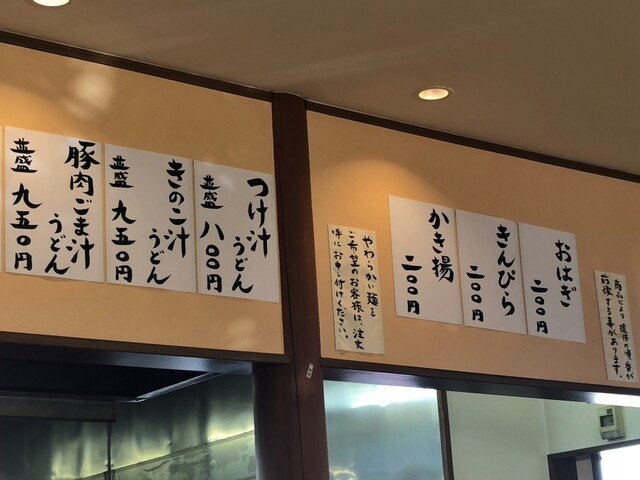 おはぎ
二〇〇円
きんぴら
二〇〇円
かき揚
二〇〇円
つけ汁
うどん
並盛 八〇〇円
きのこ汁
うどん
並盛 九五〇円
豚肉ごま汁
うどん
並盛 九五〇円
やわらかい麺を
ご希望のお客様は、注文
時にお申し付けください。
商品により提供の順番が
前後する事があります。